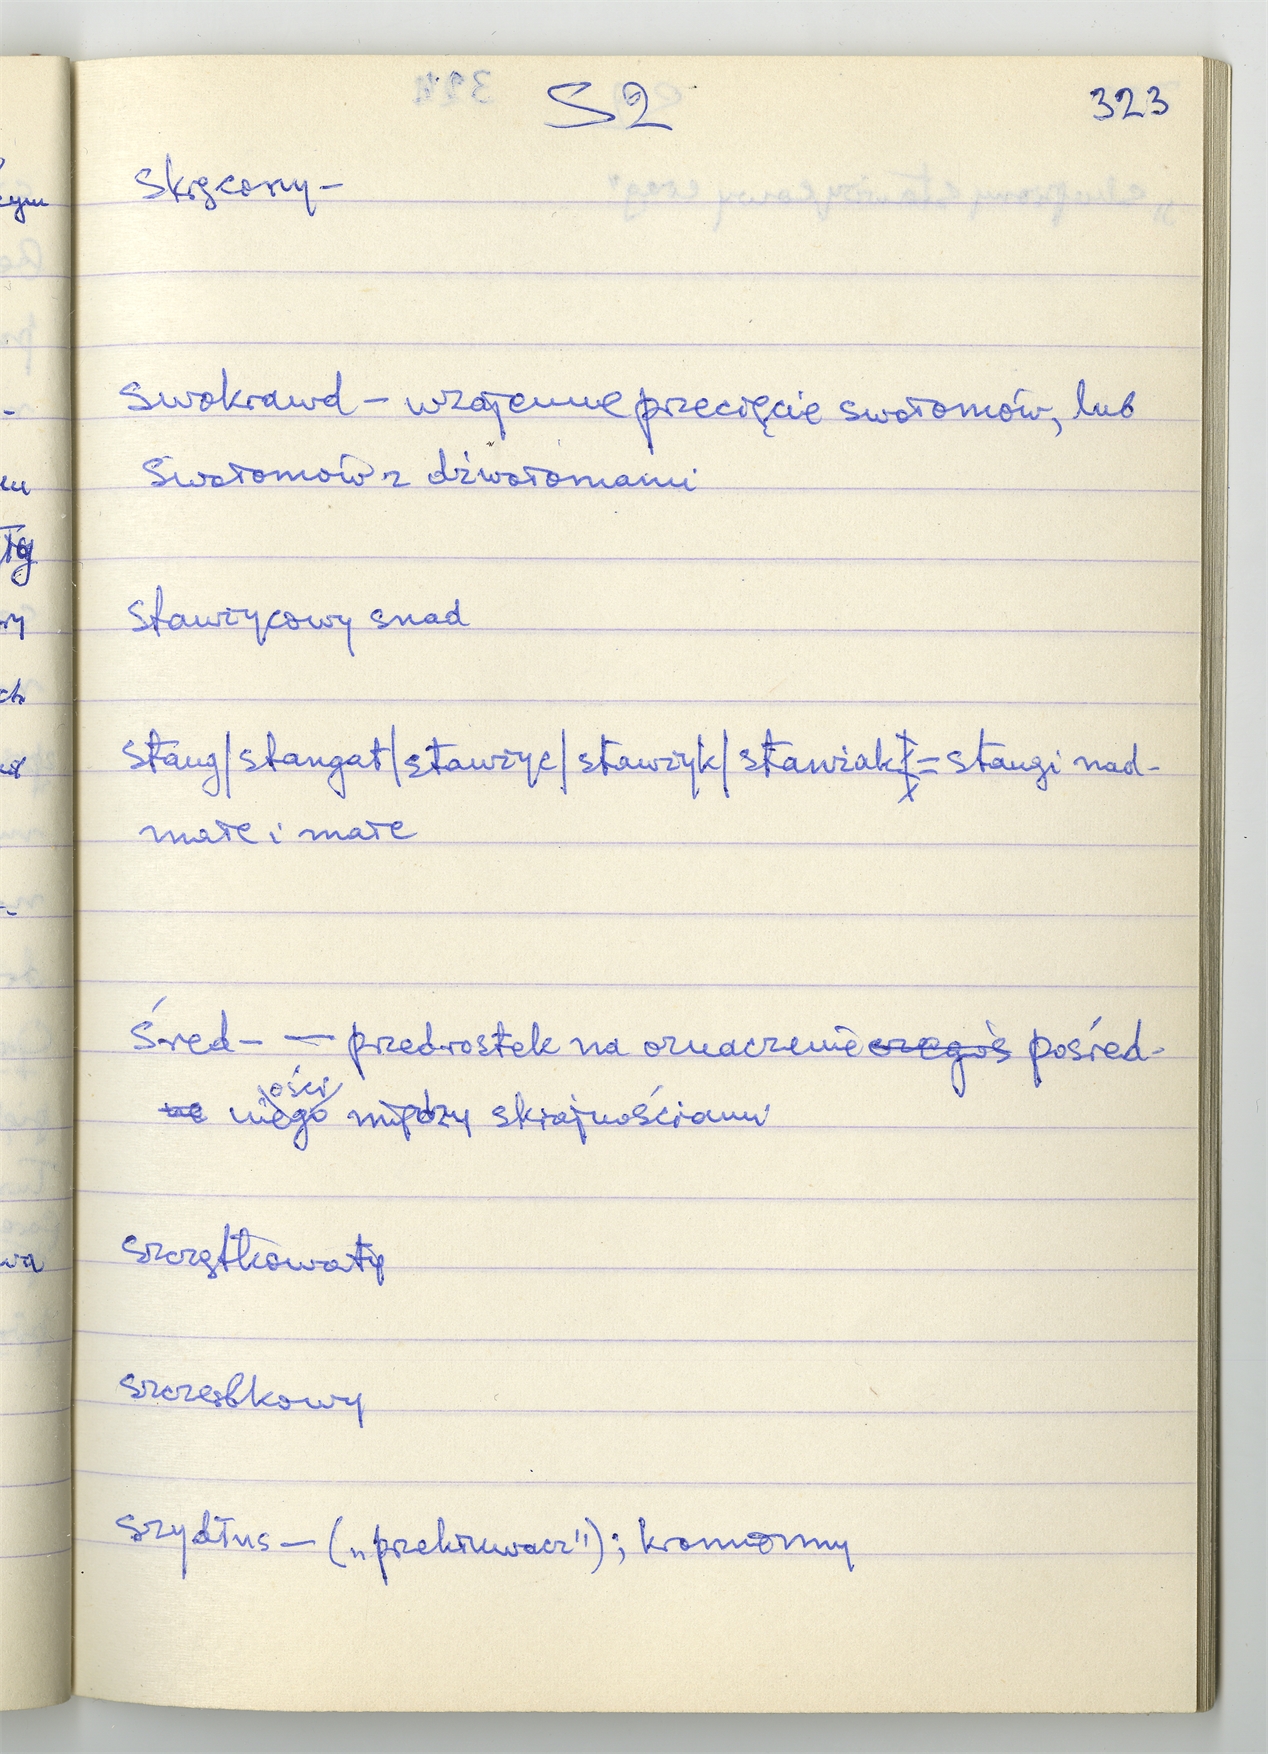 S2 323
skręcony –
swokrawd – wzajemne przecięcie swołomów, lub
swołomów z dźwołomami
stawżycowy snad
stang/stangat/stawżyc/stawżyk/stawżak = stangi nad-
małe i małe
śred- — przedrostek na oznaczenie czegoś pośred-
niego ości między skrajnościami
szczątkowaty
szczerbkowy
szydłus – („przekłuwacz");